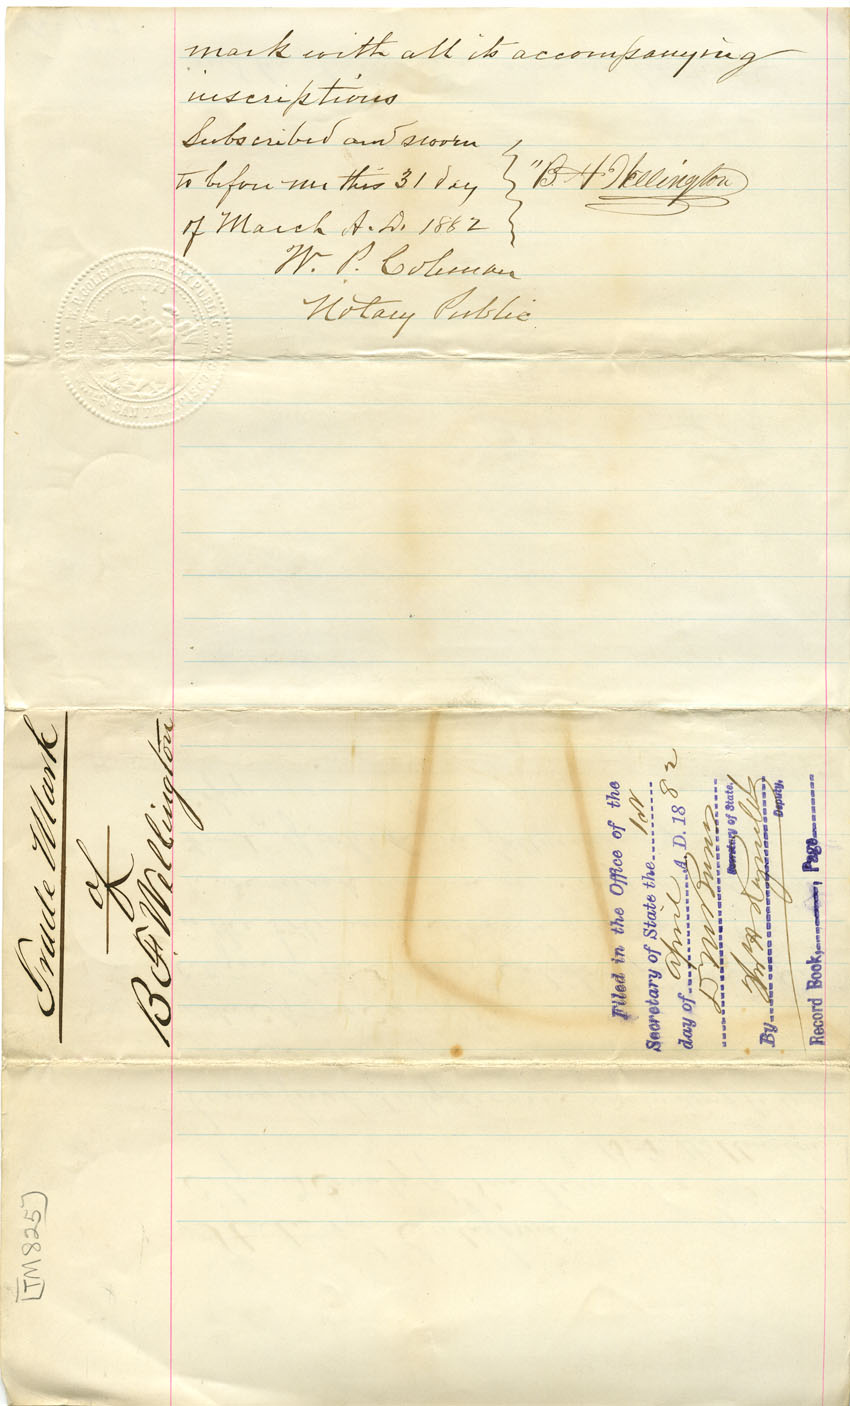 mark with all its accompanying
inscriptions
Subscribed and sworn
to before me this 31 day
of March A.D. 1882
"B. F. Wellington
W. P. Coleman
Notary Public
NOTARY PUBLIC
SAN FRANCISCO
Trade Mark
of
B F Wellington
Filed in the Office of the
Secretary of State the 1st
day of April A.D. 1882
D M Burns
Secretary of State.
By Wm H
Deputy.
Record Book, Page
[TM 825]